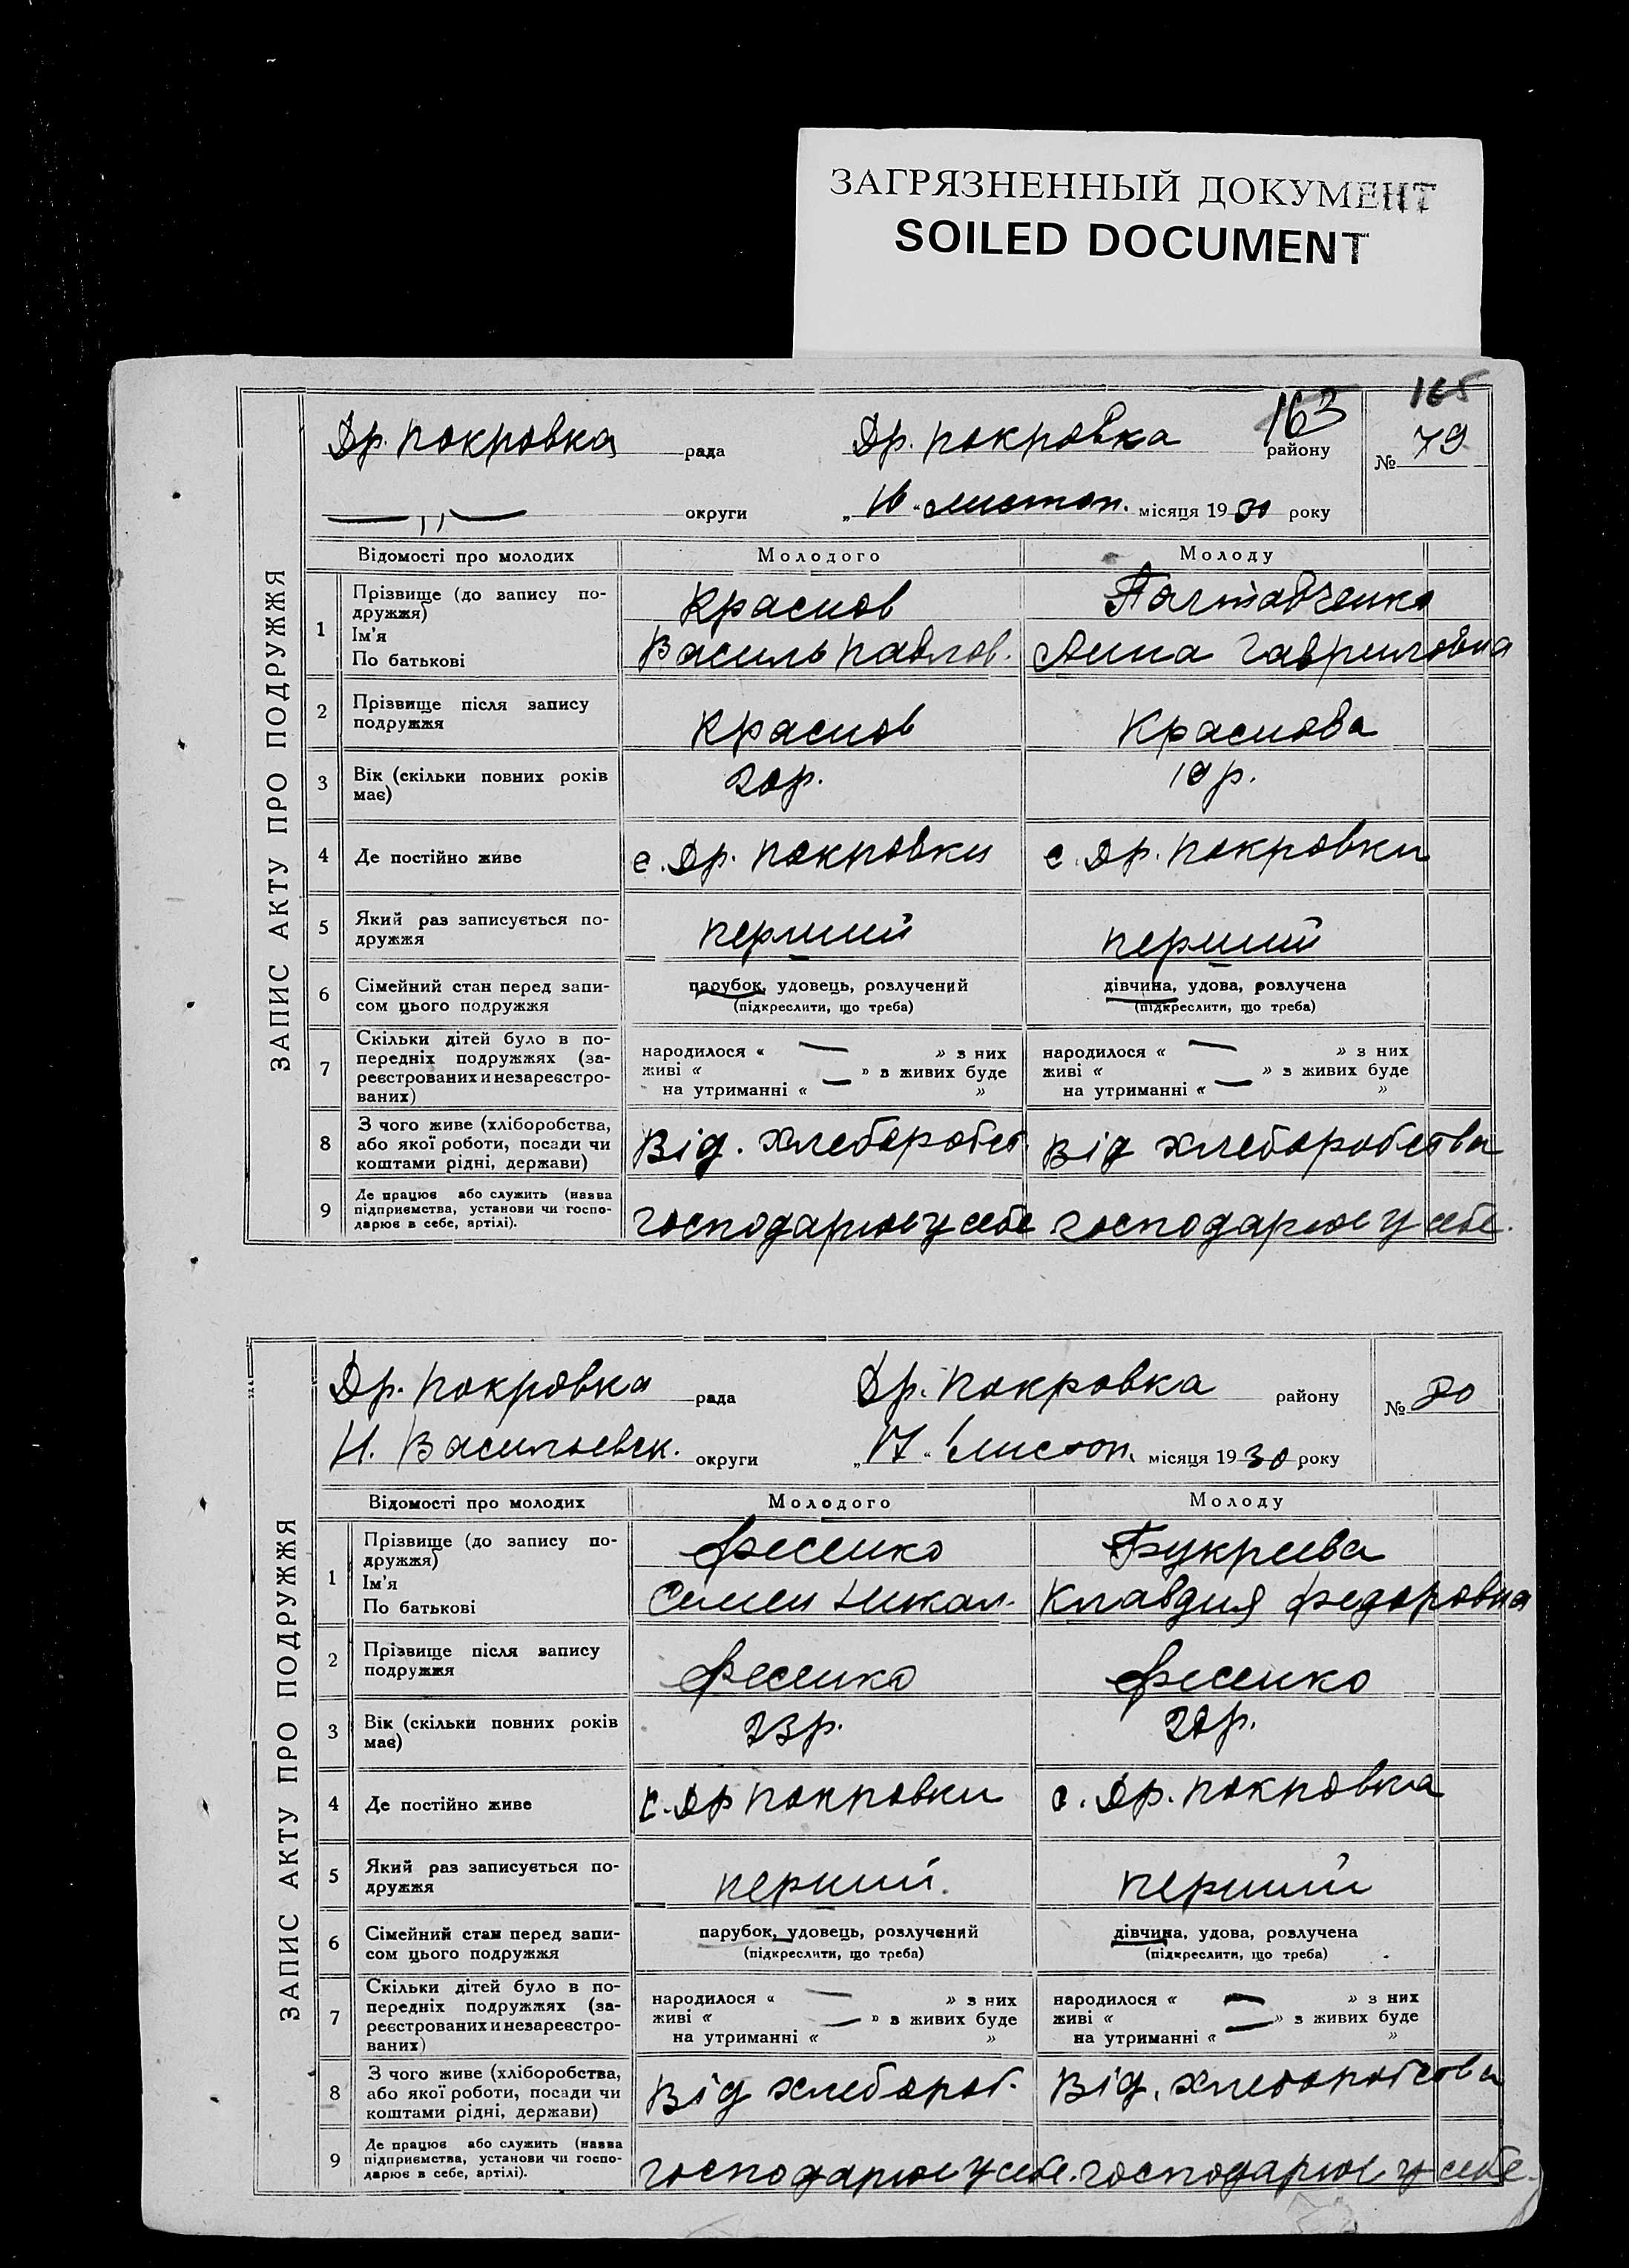 ЗАГРЯЗНЕННЫЙ ДОКУМЕНТ
SOILED DOCUMENT
165
163
ЗАПИС АКТУ ПРО ПОДРУЖЖЯ
Др. Покровка рада Др. Покровка району № 79
—„— округи „16“ листоп. місяця 1930 року
Відомості про молодих Молодого Молоду
1 Прізвище (до запису по-
дружжя) Краснов Палтавченко
Ім'я
По батькові Василь Павлов. Анна Гавриловна
2 Прізвище після запису
подружжя Краснов Краснова
3 Вік (скільки повних років
має) 20р. р.
4 Де постійно живе с. Др. Покровки с. Др. Покровки
5 Який раз записується по-
дружжя перший перший
6 Сімейний стан перед запи-
сом цього подружжя парубок, удовець, розлучений дівчина, удова, розлучена
(підкреслити, що треба) (підкреслити, що треба)
7 Скільки дітей було в по-
передніх подружжях (за-
реєстрованих и незареєстро-
ваних)
народилося « — » з них народилося « — » з них
живі « » з живих буде живі « » з живих буде
на утриманні « — » на утриманні « — »
8 З чого живе (хліборобства,
або якої роботи, посади чи
коштами рідні, держави) Від. хлеборобст Від хлеборобства
9 Де працює або служить (назва
підприємства, установи чи госпо-
дарює в себе, артілі). господарює у себе господарює у себе.
ЗАПИС АКТУ ПРО ПОДРУЖЖЯ
Др. Покровка рада Др. Покровка району № 80
Н. Васильевск. округи „17“ Листоп. місяця 1930 року
Відомості про молодих Молодого Молоду
1 Прізвище (до запису по-
дружжя) Фесенко Букреева
Ім'я
По батькові Семен Никал. Клавдия Федоровна
2 Прізвище після запису
подружжя Фесенко Фесенко
3 Вік (скільки повних років
має) 23р. р.
4 Де постійно живе с. Др Покровки с. Др. Покровка
5 Який раз записується по-
дружжя перший. перший
6 Сімейний стан перед запи-
сом цього подружжя парубок, удовець, розлучений дівчина, удова, розлучена
(підкреслити, що треба) (підкреслити, що треба)
7 Скільки дітей було в по-
передніх подружжях (за-
реєстрованих и незареєстро-
ваних)
народилося « — » з них народилося « — » з них
живі « » з живих буде живі « » з живих буде
на утриманні « — » на утриманні « — »
8 З чого живе (хліборобства,
або якої роботи, посади чи
коштами рідні, держави) Від хлебороб. Від. хлеборобства
9 Де працює або служить (назва
підприємства, установи чи госпо-
дарює в себе, артілі). господарює у себе. господарює у себе.